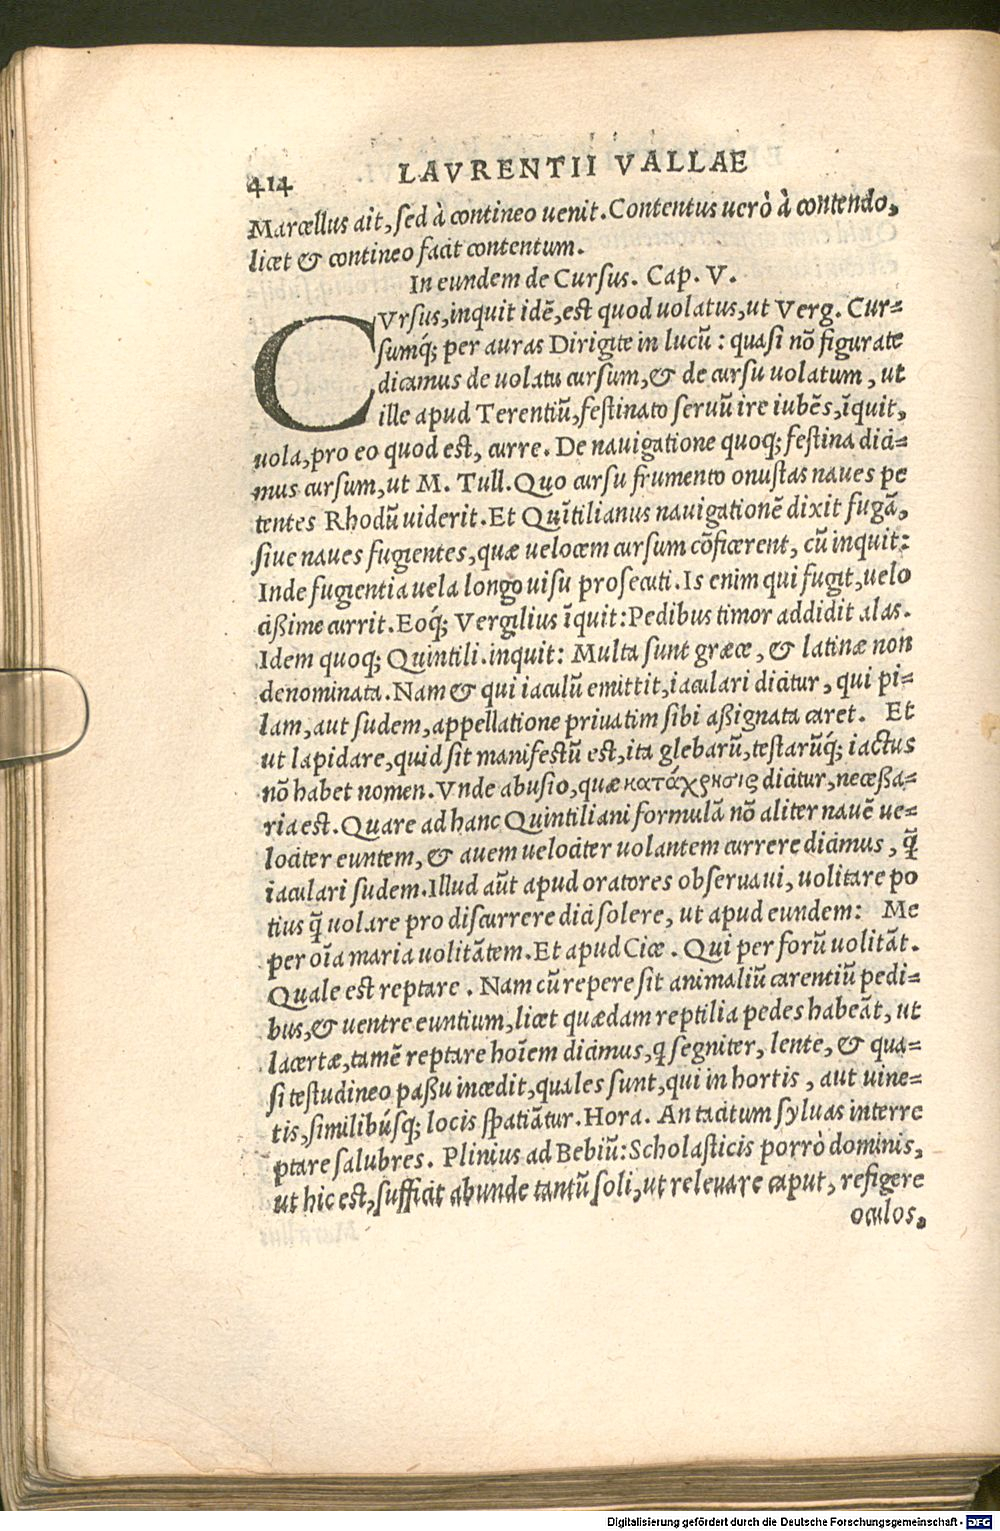 414 LAVRENTII VALLAE
Marcellus ait, sed à contineo uenit. Contentus uerò à contendo,
licet & contineo facit contentum.
In eundem de Cursus. Cap. V.
CVrsus, inquit idē, est quod uolatus, ut Verg. Cur-
sumq́; per auras Dirigite in lucū: quasi nō figurate
dicamus de uolatu cursum, & de cursu uolatum, ut
ille apud Terentiū, festinato seruū ire iubēs, īquit,
uola, pro eo quod est, curre. De nauigatione quoq; festina dici-
mus cursum, ut M. Tull. Quo cursu frumento onustas naues pe
tentes Rhodū uiderit. Et Quītilianus nauigationē dixit fugā,
siue naues fugientes, quæ uelocem cursum cōficerent, cū inquit:
Inde fugientia uela longo uisu prosecuti. Is enim qui fugit, uelo
cißime currit. Eoq́; Vergilius īquit: Pedibus timor addidit alas.
Idem quoq; Quintili. inquit: Multa sunt græce, & latinæ non
denominata. Nam & qui iaculū emittit, iaculari dicitur, qui pi-
lam, aut sudem, appellatione priuatim sibi aßignata caret. Et
ut lapidare, quid sit manifestū est, ita glebarū, testarūq́; iactus
nō habet nomen. Vnde abusio, quæ κατάχρησις dicitur, neceßa-
ria est. Quare ad hanc Quintiliani formulā nō aliter nauē ue-
lociter euntem, & auem uelociter uolantem currere dicimus, q̄
iaculari sudem. Illud aūt apud oratores obseruaui, uolitare po
tius q̄ uolare pro discurrere dici solere, ut apud eundem: Me
per oīa maria uolitātem. Et apud Cice. Qui per forū uolitāt.
Quale est reptare. Nam cū repere sit animaliū carentiū pedi-
bus, & uentre euntium, licet quædam reptilia pedes habeāt, ut
lacertæ, tamē reptare hoīem dicimus, q segniter, lente, & qua-
si testudineo paßu incedit, quales sunt, qui in hortis, aut uine-
tis, similibúsq; locis spatiātur. Hora. An tacitum syluas interre
ptare salubres. Plinius ad Bebiū: Scholasticis porrò dominis,
ut hic est, sufficit abunde tantū soli, ut releuare caput, refigere
oculos,
Digitalisierung gefördert durch die Deutsche Forschungsgemeinschaft - DFG